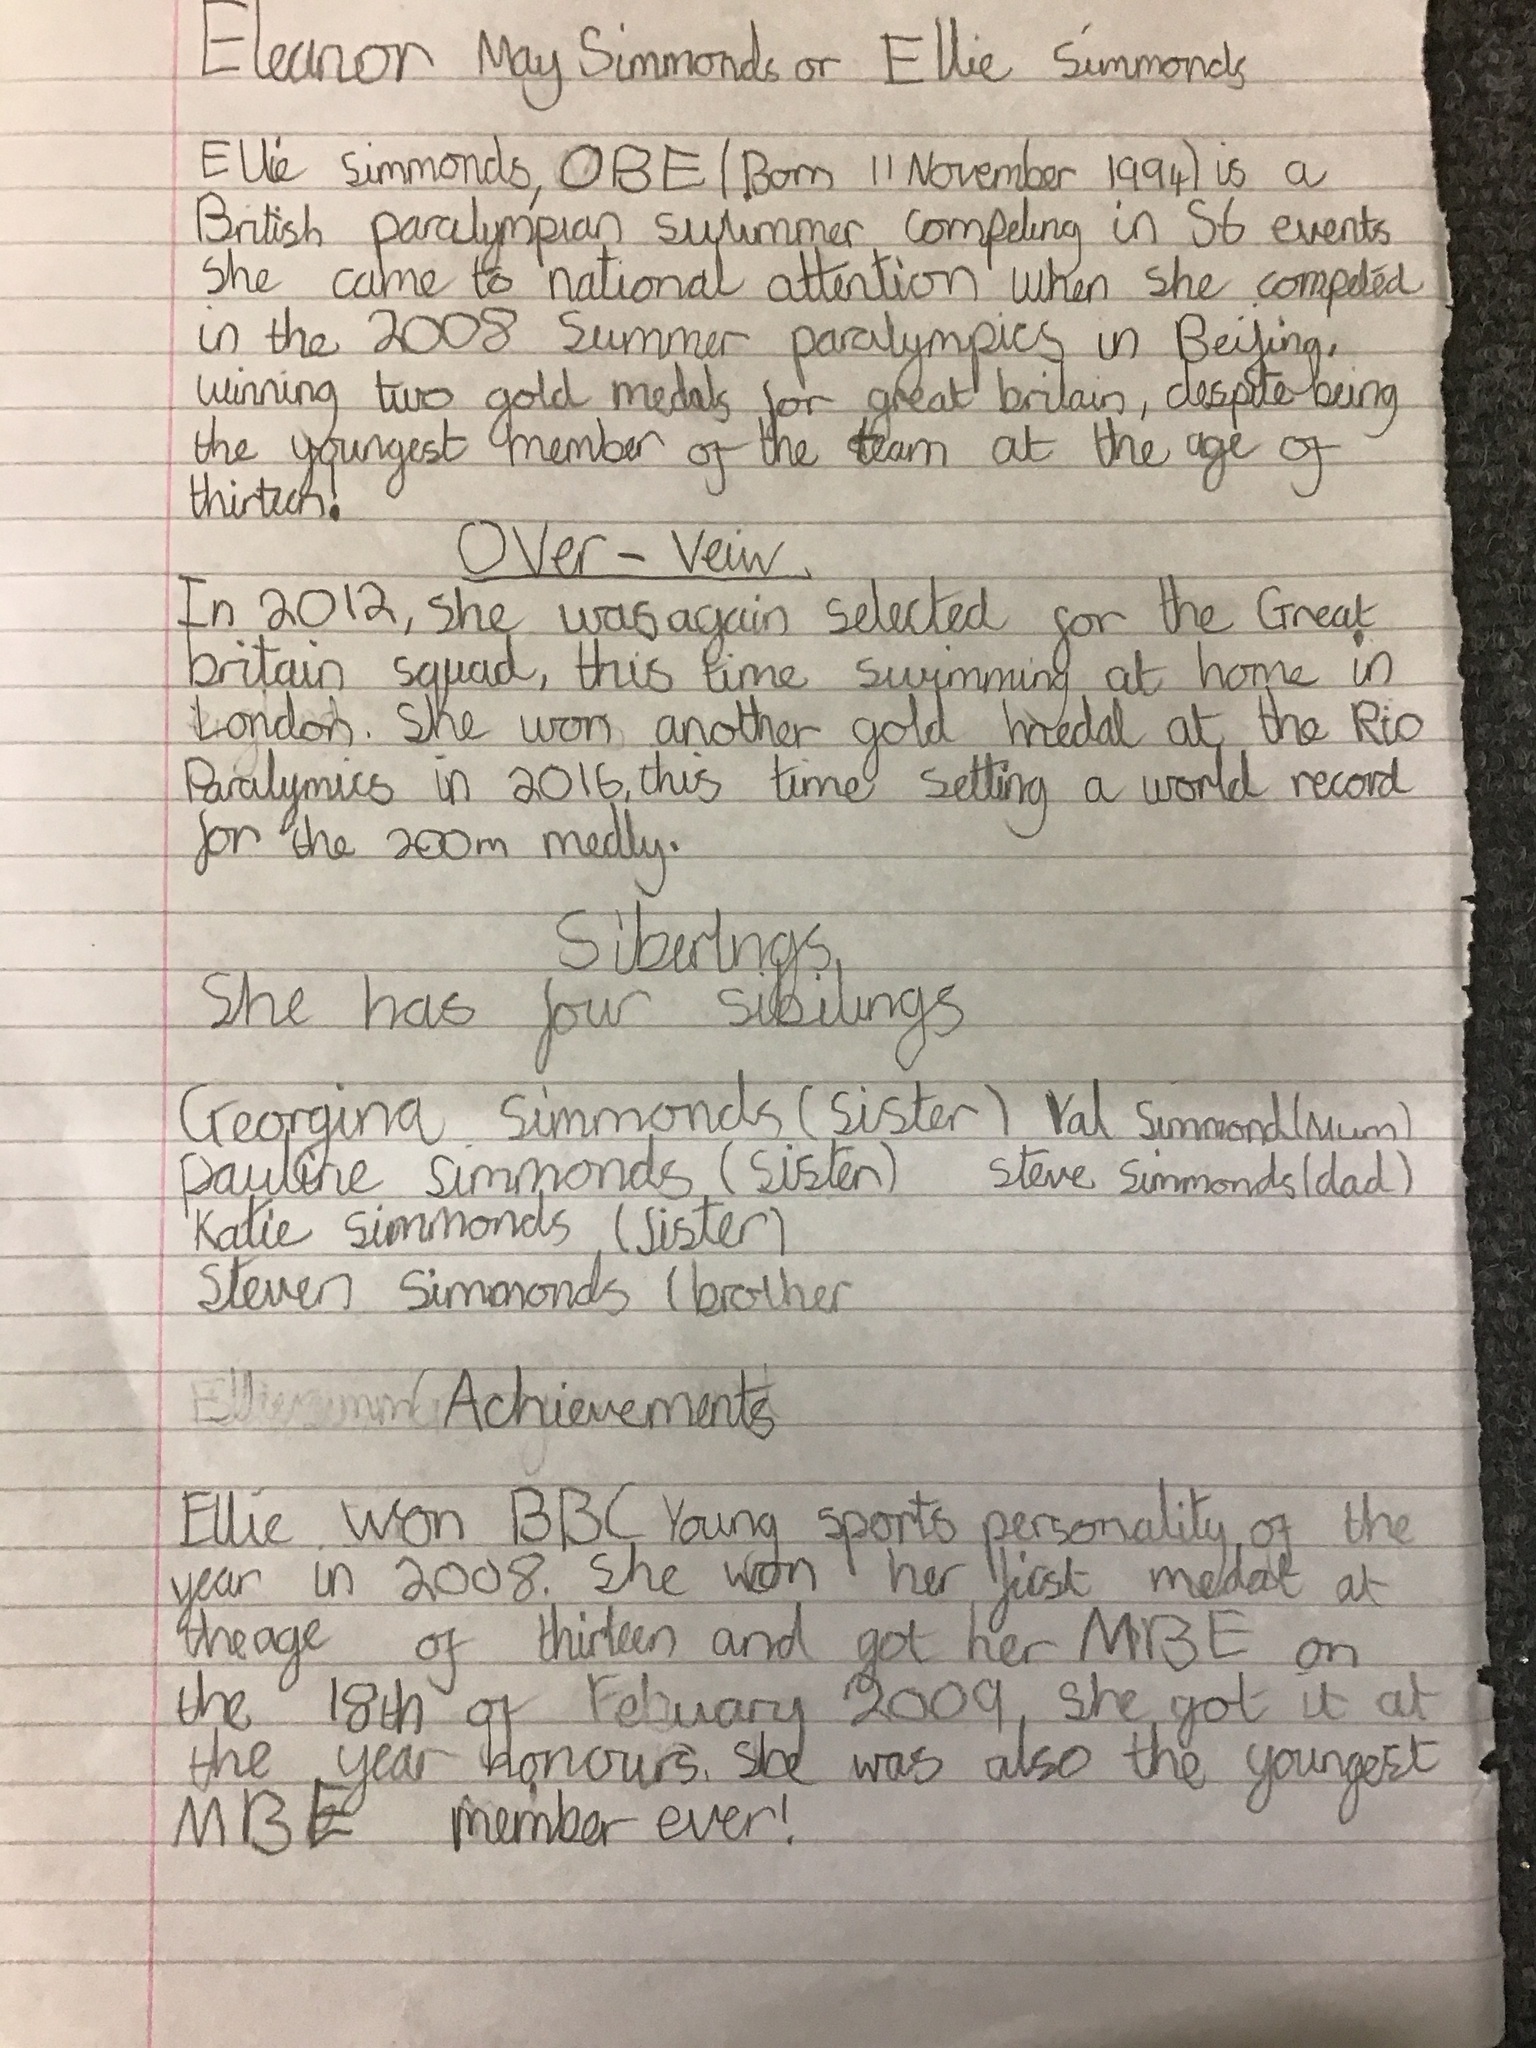 Eleanor May Simmonds or Ellie Simmonds
Ellie Simmonds, OBE (Born 11 November 1994) is a
British paralympian swimmer competing in S6 events
She came to national attention when she competed
in the 2008 Summer paralympics in Beijing,
winning two gold medals for great britain, despite being
the youngest member of the team at the age of
thirteen!
Over-Veiw
In 2012, she was again selected for the Great
britain squad, this time swimming at home in
London. She won another gold medal at the Rio
Paralymics in 2016, this time setting a world record
for the 200m medly.
Siberlngs
She has four sibilings
Georgina Simmonds (sister) Val Simmond (Mum)
Pauline Simmonds (sister) Steve Simmonds (dad)
Katie Simmonds (sister)
Steven Simmonds (brother
Achievements
Ellie won BBC Young sports personality of the
year in 2008. She won her first medal at
the age of thirteen and got her MBE on
the 18th of Febuary 2009, she got it at
the year honours. She was also the youngest
MBE member ever!